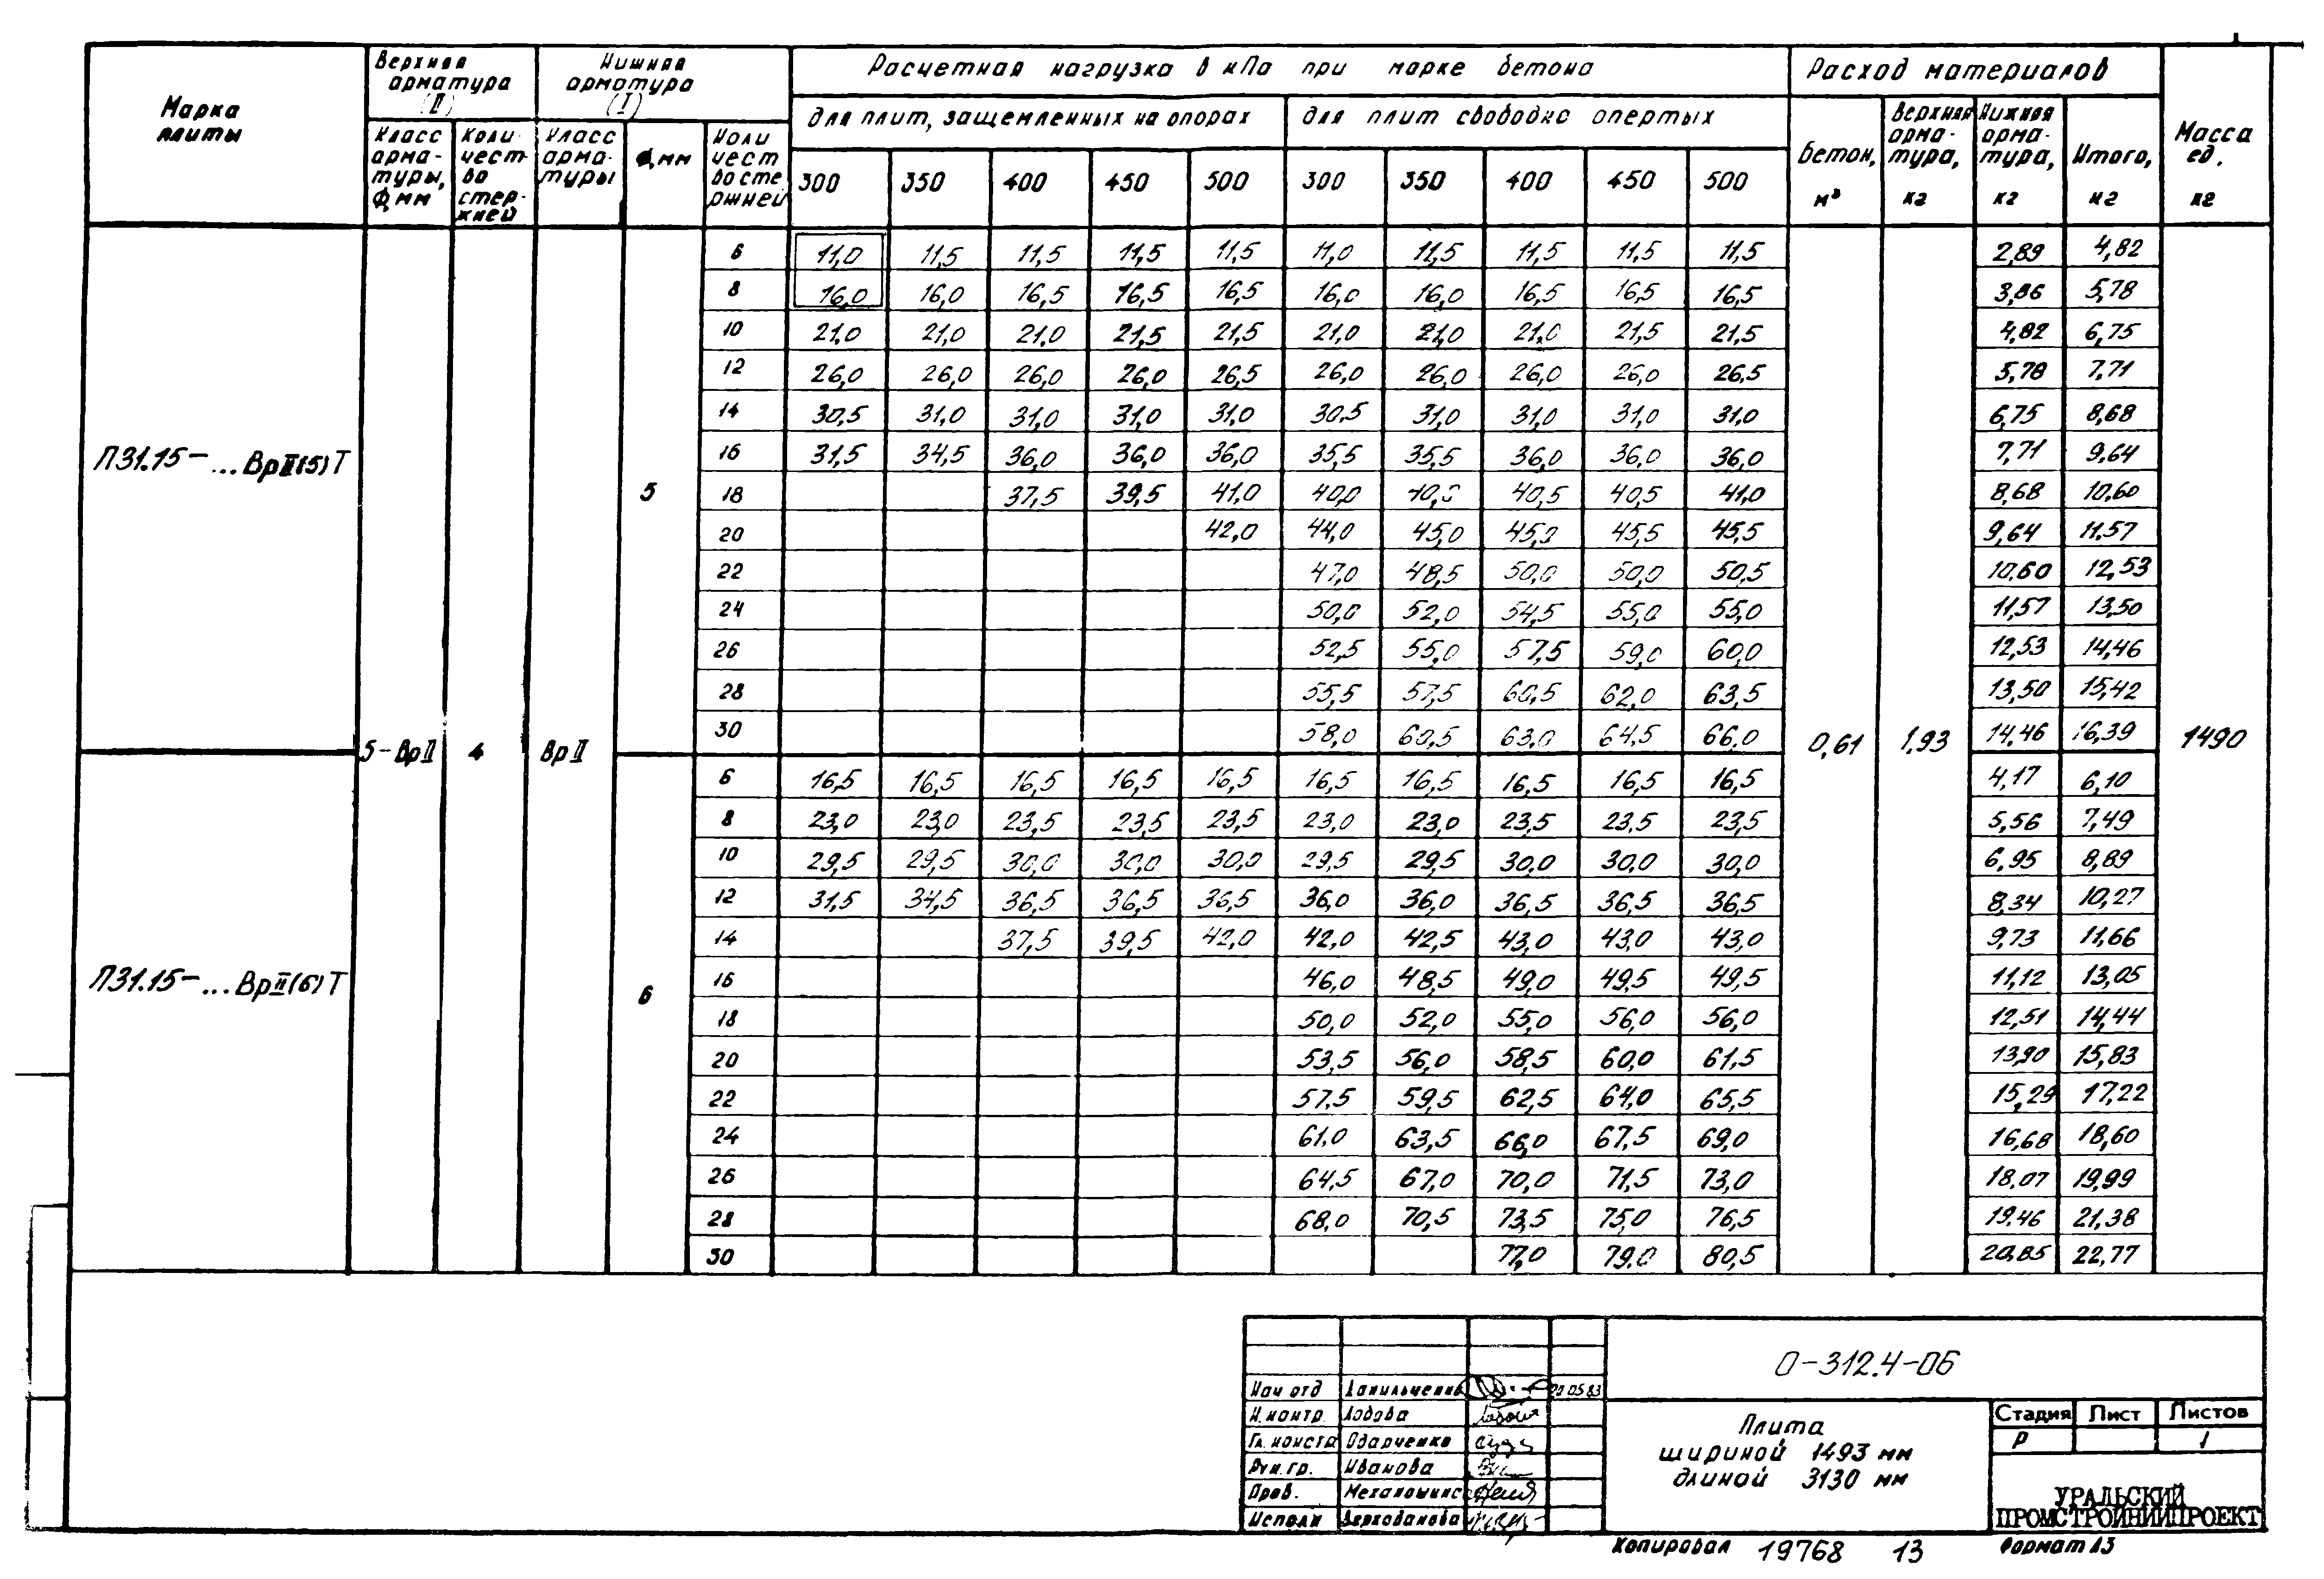 Марка плиты
Верхняя арматура (II)
Нижняя арматура (I)
Расчетная нагрузка в кПа при марке бетона
Расход материалов
Масса ед. кг
для плит, защемленных на опорах
для плит свободно опертых
Класс арматуры, Ф, мм
Количество стержней
Класс арматуры
Ф, мм
Количество стержней
300 350 400 450 500 300 350 400 450 500
Бетон, м³
Верхняя арматура, кг
Нижняя арматура, кг
Итого, кг
П31.15-...ВрII(5)Т
5-ВрII 4 ВрII
5
6 11,0 11,5 11,5 11,5 11,5 11,0 11,5 11,5 11,5 11,5 2,89 4,82
8 16,0 16,0 16,5 16,5 16,5 16,0 16,0 16,5 16,5 16,5 3,86 5,78
10 21,0 21,0 21,0 21,5 21,5 21,0 21,0 21,0 21,5 21,5 4,82 6,75
12 26,0 26,0 26,0 26,0 26,5 26,0 26,0 26,0 26,0 26,5 5,78 7,71
14 30,5 31,0 31,0 31,0 31,0 30,5 31,0 31,0 31,0 31,0 6,75 8,68
16 31,5 34,5 36,0 36,0 36,0 35,5 35,5 36,0 36,0 36,0 7,71 9,64
18 37,5 39,5 41,0 40,0 40,0 40,5 40,5 41,0 8,68 10,60
20 42,0 44,0 45,0 45,0 45,5 45,5 9,64 11,57
22 47,0 48,5 50,0 50,0 50,5 10,60 12,53
24 50,0 52,0 54,5 55,0 55,0 11,57 13,50
26 52,5 55,0 57,5 59,0 60,0 12,53 14,46
28 55,5 57,5 60,5 62,0 63,5 13,50 15,42
30 58,0 60,5 63,0 64,5 66,0 14,46 16,39
0,61 1,93 1490
П31.15-...ВрII(6)Т
6
6 16,5 16,5 16,5 16,5 16,5 16,5 16,5 16,5 16,5 16,5 4,17 6,10
8 23,0 23,0 23,5 23,5 23,5 23,0 23,0 23,5 23,5 23,5 5,56 7,49
10 29,5 29,5 30,0 30,0 30,0 29,5 29,5 30,0 30,0 30,0 6,95 8,89
12 31,5 34,5 36,5 36,5 36,5 36,0 36,0 36,5 36,5 36,5 8,34 10,27
14 37,5 39,5 42,0 42,0 42,5 43,0 43,0 43,0 9,73 11,66
16 46,0 48,5 49,0 49,5 49,5 11,12 13,05
18 50,0 52,0 55,0 56,0 56,0 12,51 14,44
20 53,5 56,0 58,5 60,0 61,5 13,90 15,83
22 57,5 59,5 62,5 64,0 65,5 15,29 17,22
24 61,0 63,5 66,0 67,5 69,0 16,68 18,60
26 64,5 67,0 70,0 71,5 73,0 18,07 19,99
28 68,0 70,5 73,5 75,0 76,5 19,46 21,38
30 77,0 79,0 80,5 20,85 22,77
О-312.4-06
Нач отд Данильченко 20 05 83
Н.контр. Лобова
Гл. констр Одарченко
Рук.гр. Иванова
Пров.
Исполн Верходанова
Плита
шириной 1493 мм
длиной 3130 мм
Стадия Лист Листов
Р 1
УРАЛЬСКИЙ
ПРОМСТРОЙНИИПРОЕКТ
Копировал 19768 13 Формат А3